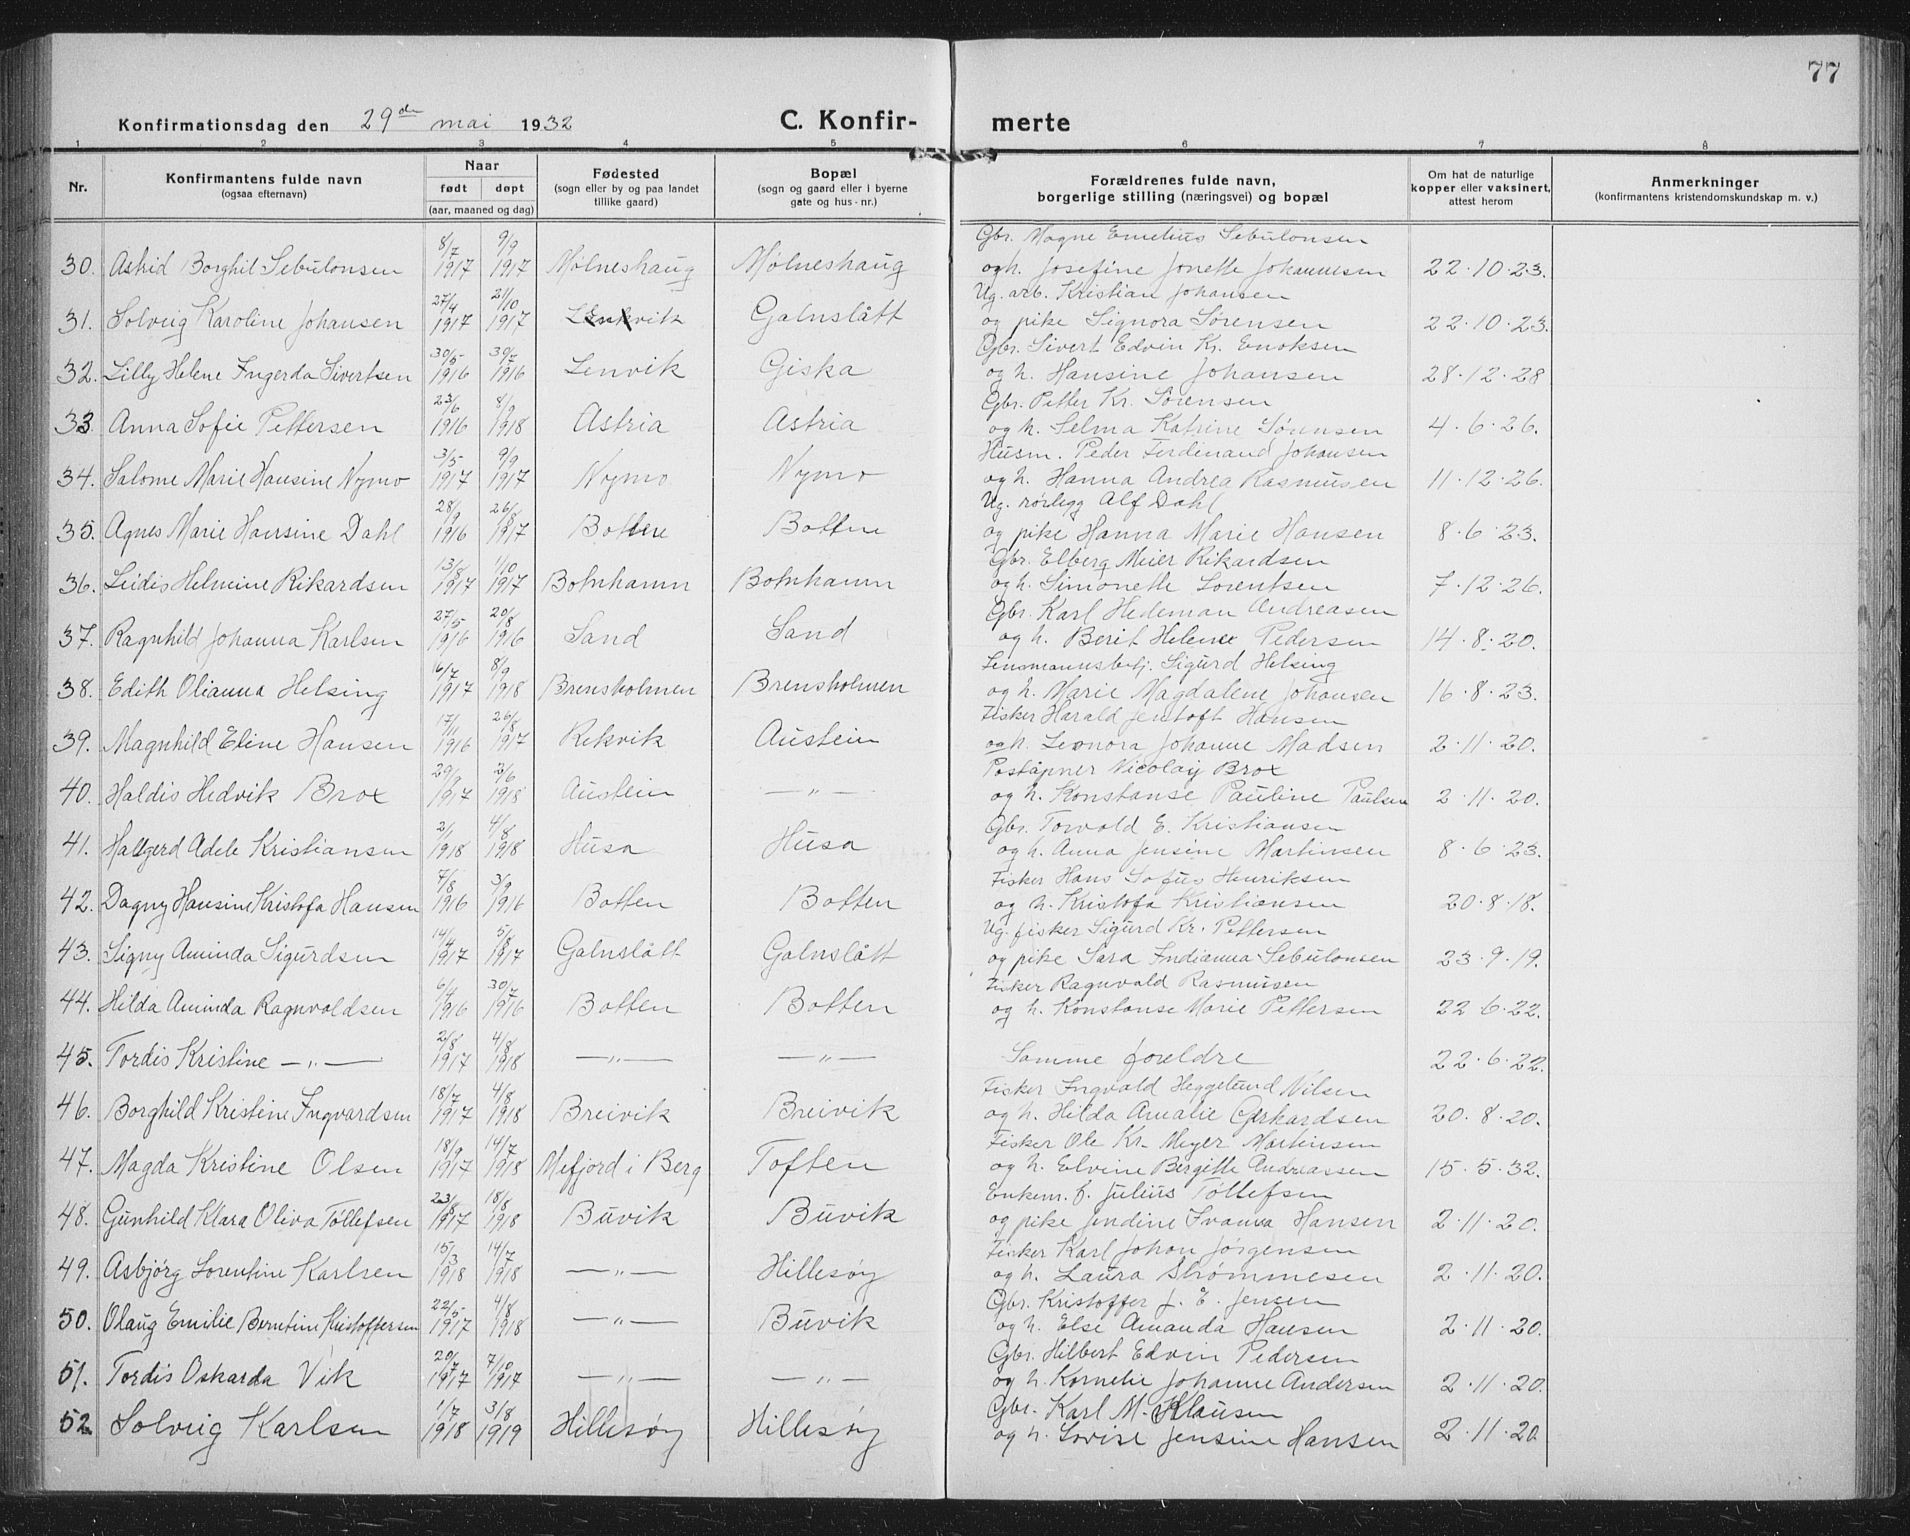 77
Konfirmationsdag den 29de mai 1932 C. Konfir- merte
1 2 3 4 5 6 7 8
Nr. Konfirmantens fulde navn (ogsaa efternavn) Naar født døpt (aar, maaned og dag) Fødested (sogn eller by og paa landet tillike gaard) Bopæl (sogn og gaard eller i byerne gate og hus-nr.) Forældrenes fulde navn, borgerlige stilling (næringsvei) og bopæl Om hat de naturlige kopper eller vaksinert, attest herom Anmerkninger (konfirmantens kristendomskundskap m. v.)
8/7 9/9 Gbr. Magne Emelius Sebulonsen
30. Astrid Borghil Sebulonsen 1917 1917 Mølneshaug Mølneshaug og h. Josefine Jonette Johannesen 22.10.23.
27/4 21/10 Ug. arb. Kristian Johansen
31. Solveig Karoline Johansen 1917 1917 Lenkvik Galnslått og pike Signora Sørensen 22.10.23.
30/5 30/7 Gbr. Sivert Edvin Kr. Enoksen
32. Lilly Helene Ingerda Sivertsen 1916 1916 Lenvik Giska og h. Hansine Johansen 28.12.28
23/6 8/9 Gbr. Petter Kr. Sørensen
33 Anna Sofie Pettersen 1916 1918 Astria Astria og h. Selma Katrine Sørensen 4.6.26.
3/5 9/9 Husm. Peder Ferdenand Johansen
34. Salome Marie Hansine Nymo 1917 1917 Nymo Nymo og h. Hanna Andrea Rasmusen 11.12.26.
28/9 26/8 Ug. rørlegg Alf Dahl
35. Agnes Marie Hansine Dahl 1916 1917 Bottne Bottne og pike Hanna Marie Hansen 8.6.23.
13/8 1/10 Gbr. Elberg Meier Rikardsen
36. Leidis Helmine Rikardsen 1917 1917 Botnhamn Botnhamn og h. Simonette Lorentsen 7.12.26.
27/5 20/8 Gbr. Karl Hedeman Andreasen
37. Ragnhild Johanna Karlsen 1916 1916 Sand Sand og h. Berit Helene Pedersen 14.8.20.
16/7 8/9 Lensmannsbetj. Sigurd Helsing
38. Edith Olianna Helsing 1917 1918 Brensholmen Brensholmen og h. Marie Magdalene Johansen 16.8.23.
17/11 26/8 Fisker Harald Jentoft Hansen
39. Magnhild Eline Hansen 1916 1917 Rekvik Austein og h. Leonora Johanne Madsen 2.11.20.
29/9 2/6 Poståpner Nicolay Brox
40. Haldis Hedvik Brox 1917 1918 Austein —"— og h. Konstanse Pauline Paulsen 2.11.20.
2/1 4/8 Gbr. Torvald E. Kristiansen
41. Hallgerd Adele Kristiansen 1918 1918 Husa Husa og h. Anna Jensine Martinsen 8.6.23.
7/8 3/9 Fisker Hans Sofus Henriksen
42. Dagny Hansine Kristofa Hansen 1916 1916 Botten Botten og h. Kristofa Kristiansen 20.8.18.
14/4 5/8 Ug. fisker Sigurd Kr. Pettersen
43. Signy Aminda Sigurdsen 1917 1917 Galnslått Galnslått og pike Sara Indianna Sebulonsen 23.9.19.
6/4 30/7 Fisker Ragnvald Rasmusen
44. Hilda Aminda Ragnvaldsen 1916 1916 Botten Botten og h. Konstanse Marie Pettersen 22.6.22.
2/8 4/8
45. Tordis Kristine —"— 1917 1918 —"— —"— Samme foreldre 22.6.22.
18/7 4/8 Fisker Ingvald Heggelund Nilsen
46. Borghild Kristine Ingvardsen 1917 1918 Breivik Breivik og h. Hilda Amalie Gerhardsen 20.8.20.
18/9 14/7 Fisker Ole Kr. Meyer Martinsen
47. Magda Kristine Olsen 1917 1918 Mefjord i Berg Toften og h. Elvine Birgitte Andreassen 15.5.32.
23/8 18/8 Enkem. f. Julius Tøllefsen
48. Gunhild Klara Oliva Tøllefsen 1917 1918 Buvik Buvik og pike Jendine Ivanna Hansen 2.11.20.
15/3 14/7 Fisker Karl Johan Jørgensen
49. Asbjørg Lorentine Karlsen 1918 1918 —"— Hillesøy og h. Laura Strømmesen 2.11.20.
22/5 4/8 Gbr. Kristoffer J. E. Jensen
50. Olaug Emilie Berntine Kristoffersen 1917 1918 —"— Buvik og h. Else Amanda Hansen 2.11.20.
20/7 7/10 Gbr. Hilbert Edvin Pedersen
51. Tordis Oskarda Vik 1917 1917 —"— —"— og h. Kornelie Johanne Andersen 2.11.20.
1/7 3/8 Gbr. Karl M. Klausen
52. Solveig Karlsen 1918 1919 Hillesøy Hillesøy og h. Lovise Jensine Hansen 2.11.20.